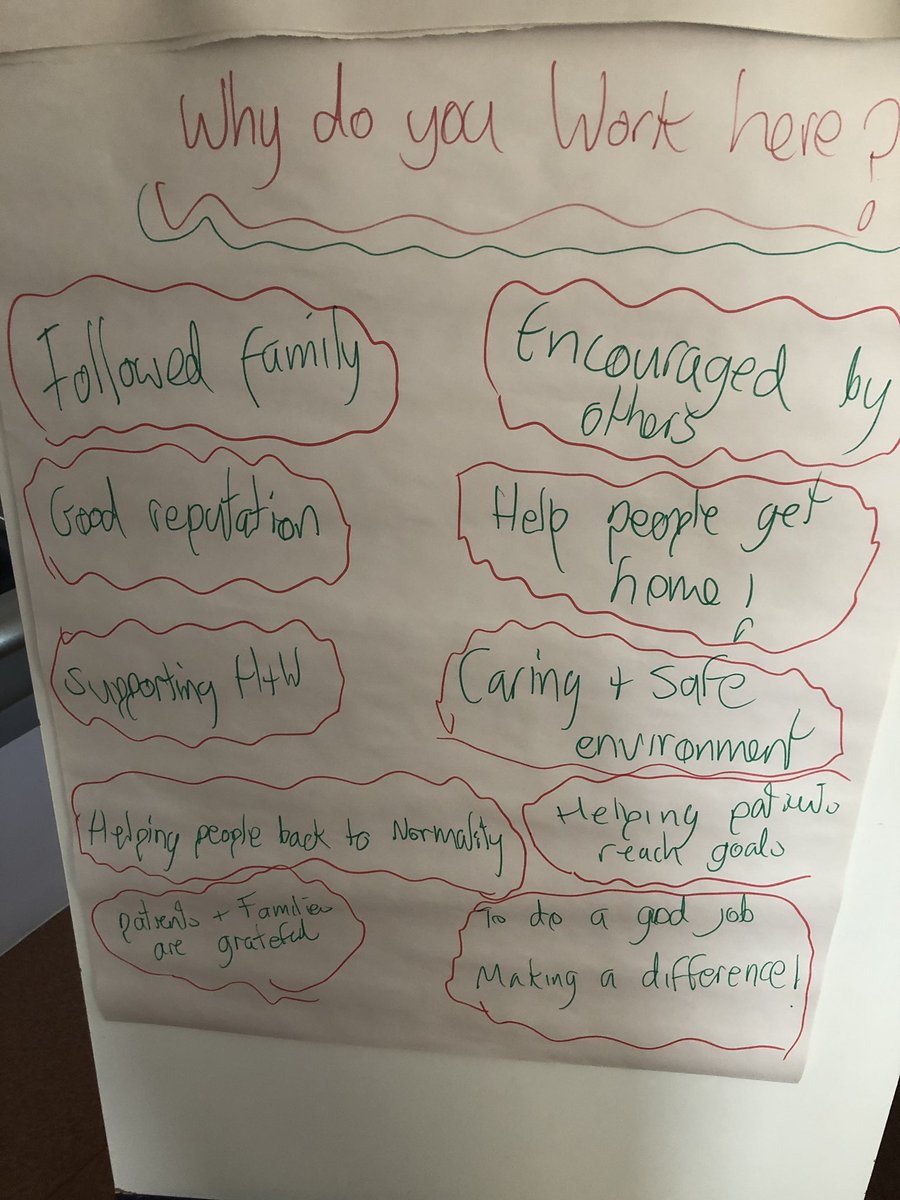 Why do you Work here?
Followed family
Encouraged by
others
Good reputation
Help people get
home!
Supporting H+W
Caring + Safe
environment
Helping people back to Normality
Helping patients
reach goals
Patients + Families
are grateful
To do a good job
Making a difference!